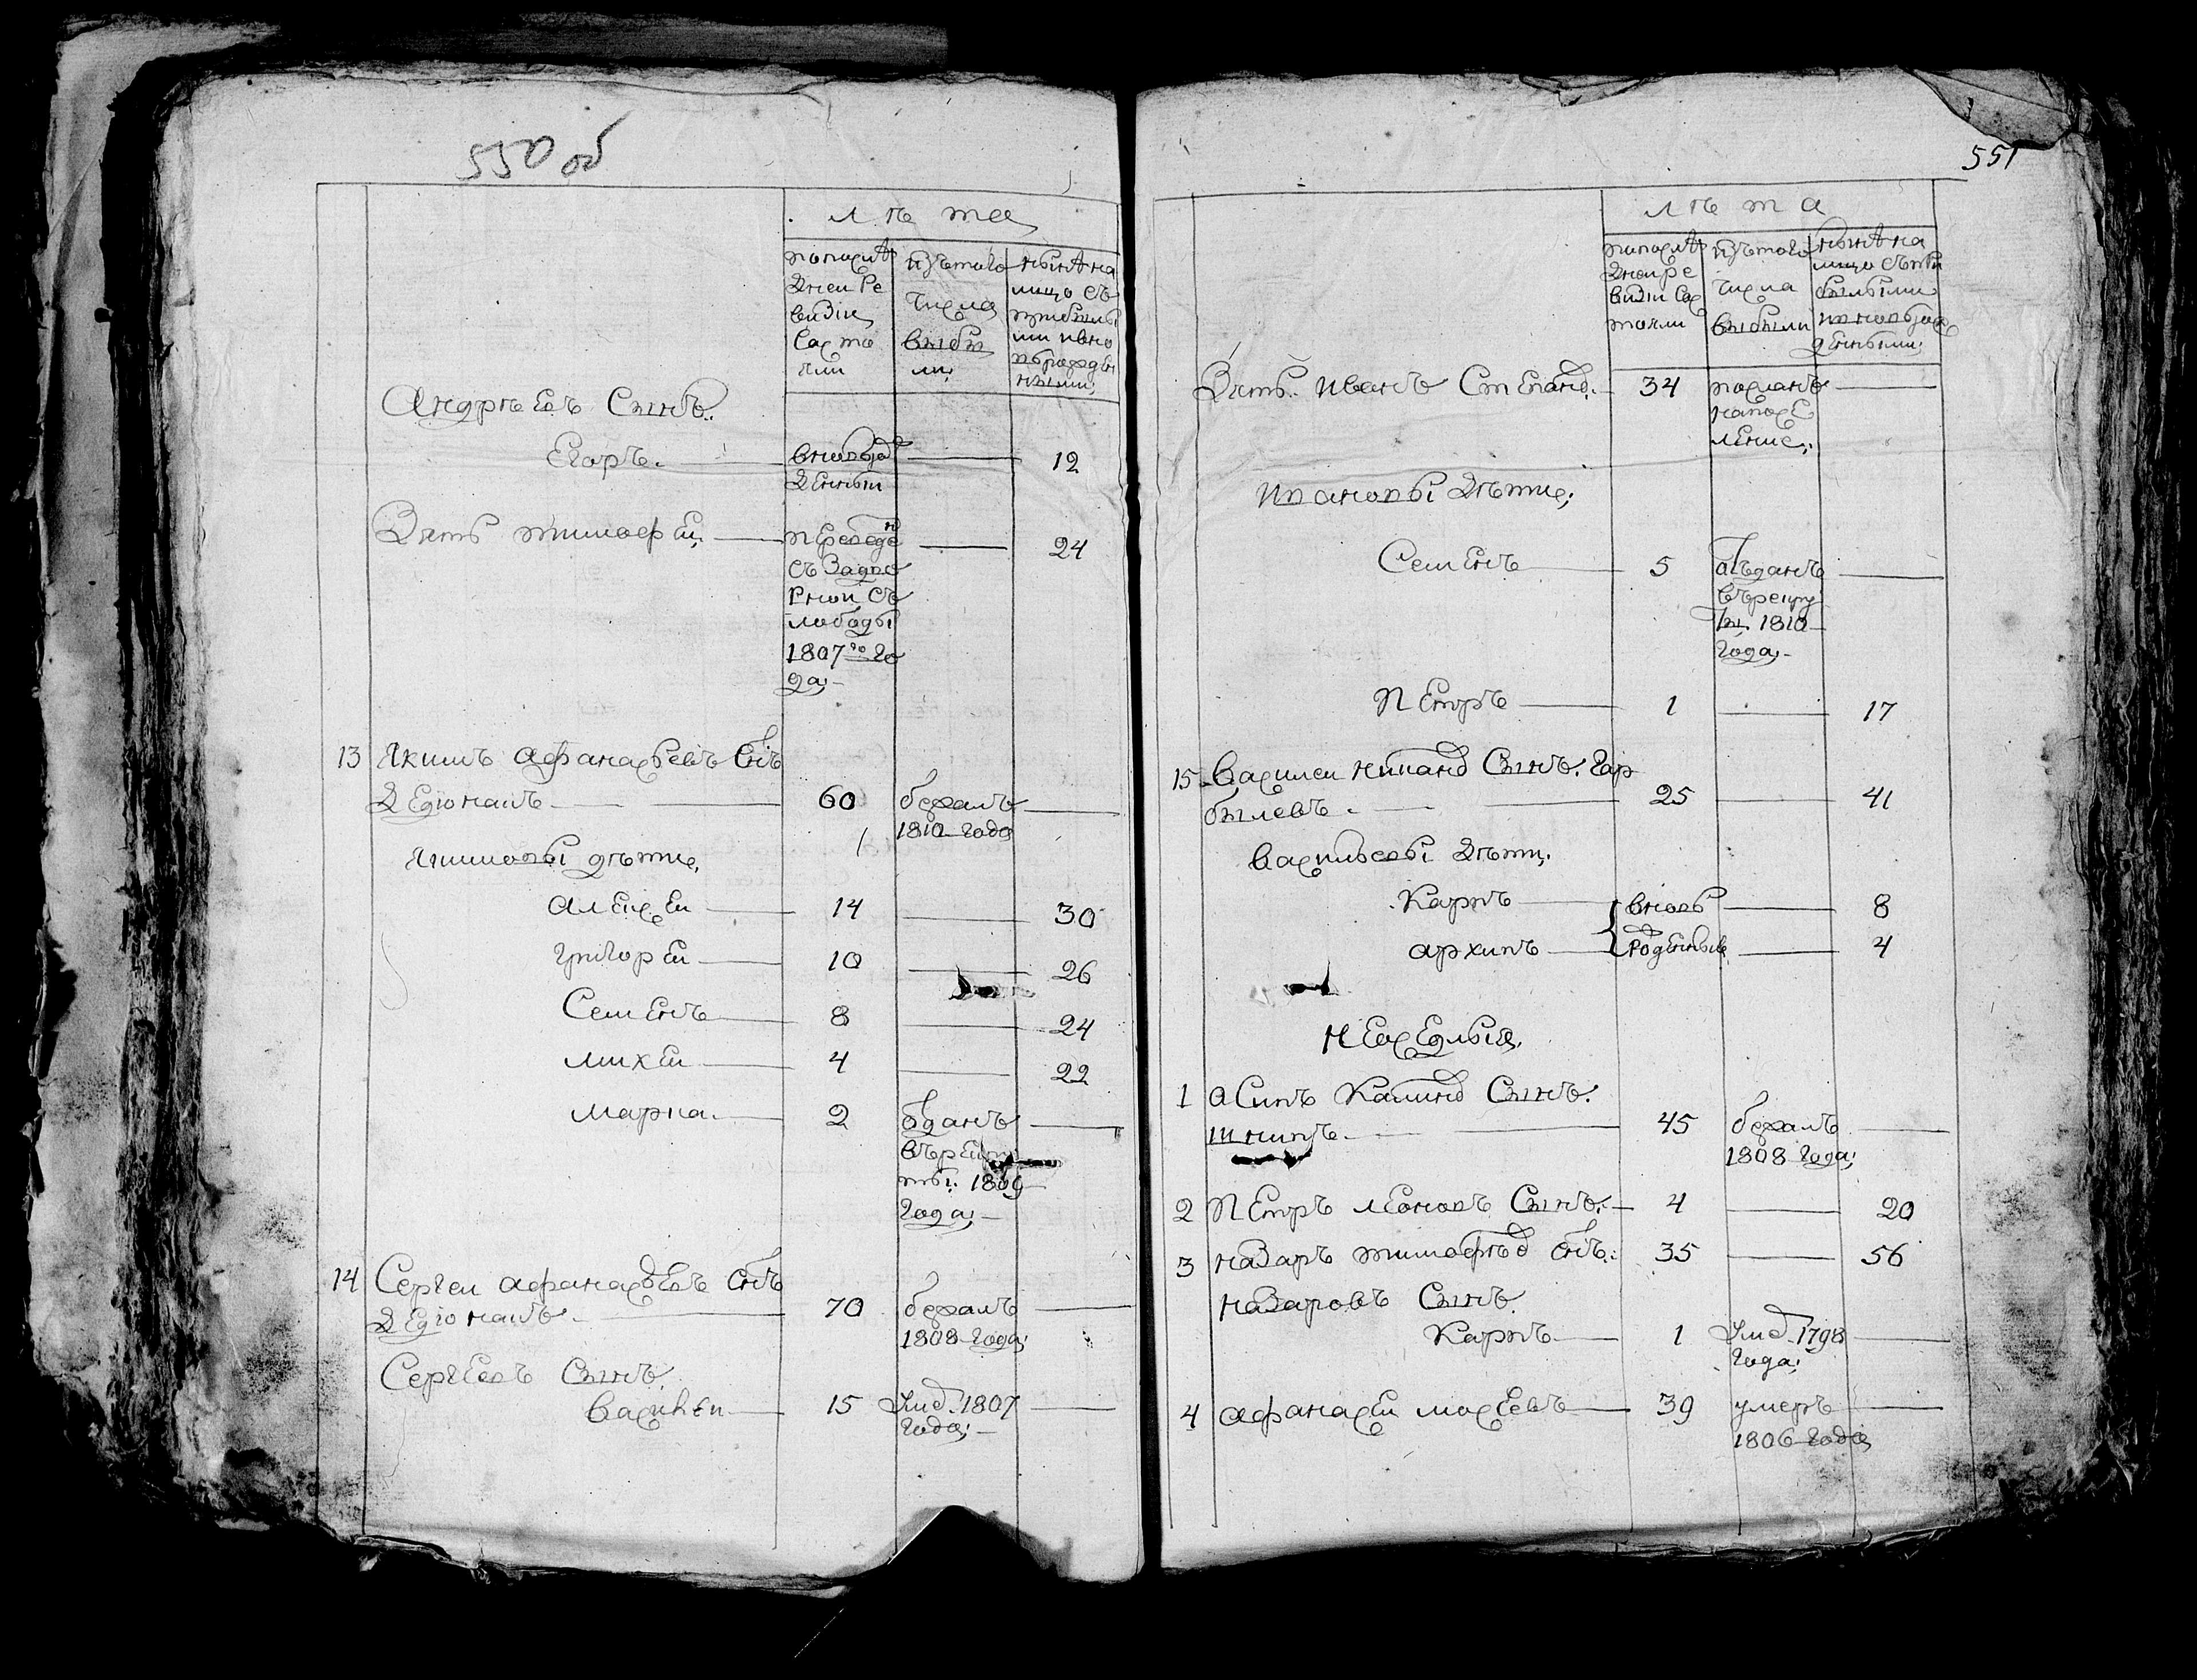 550 об
лѣта
попослѣ
дней ре
визіи
состо
яли
изътого
числа
выбы
ли
нынѣ на
лицо съ
прибылы
ми ивно
ворожден
ными
Андрѣевъ Сынъ
Егоръ 12
вновьрож
денный
Зять тимофей 24
переведен
съ Задне
рной съ
лободы
1807го го
да
13 Якимъ афанасьевъ снъ
Дедюнаивъ 60 бежалъ
1810 года
якимовы дѣти
алексей 14 30
григорей 10 26
Семенъ 8 24
михей 4 22
марка 2 отданъ
въ рекру
ты 1809
года
14 Сергеи афанасьевъ снъ
70 бежалъ
1808 года
Сергеевъ Сынъ
василеи 15 умер 1807
года
551
лѣта
попослѣ
днеи ре
визіи сос
тояли
изътого
числа
выбыли
нынѣ на
лицо съпри
былыми
рож
денными
Зять иванъ Степанов 34 посланъ
напосе
ление
ивановы дѣти
Семенъ 5 отъданъ
въ рекру
ты 1810
года
Петръ 1 17
15 василеи Сынъ гор
былевъ 25 41
васильевы дѣти
карпъ вновь 8
архипъ рожденные 4
неоседлыя
1 Осипъ калинов Сынъ
45 бежалъ
1808 года
2 Петръ леоновъ Сынъ 4 20
3 назаръ тимофѣев снъ 35 56
назаровъ Сынъ
карпъ 1 умер 1798
года
4 афанасей мосеевъ 39 умеръ
1806 года